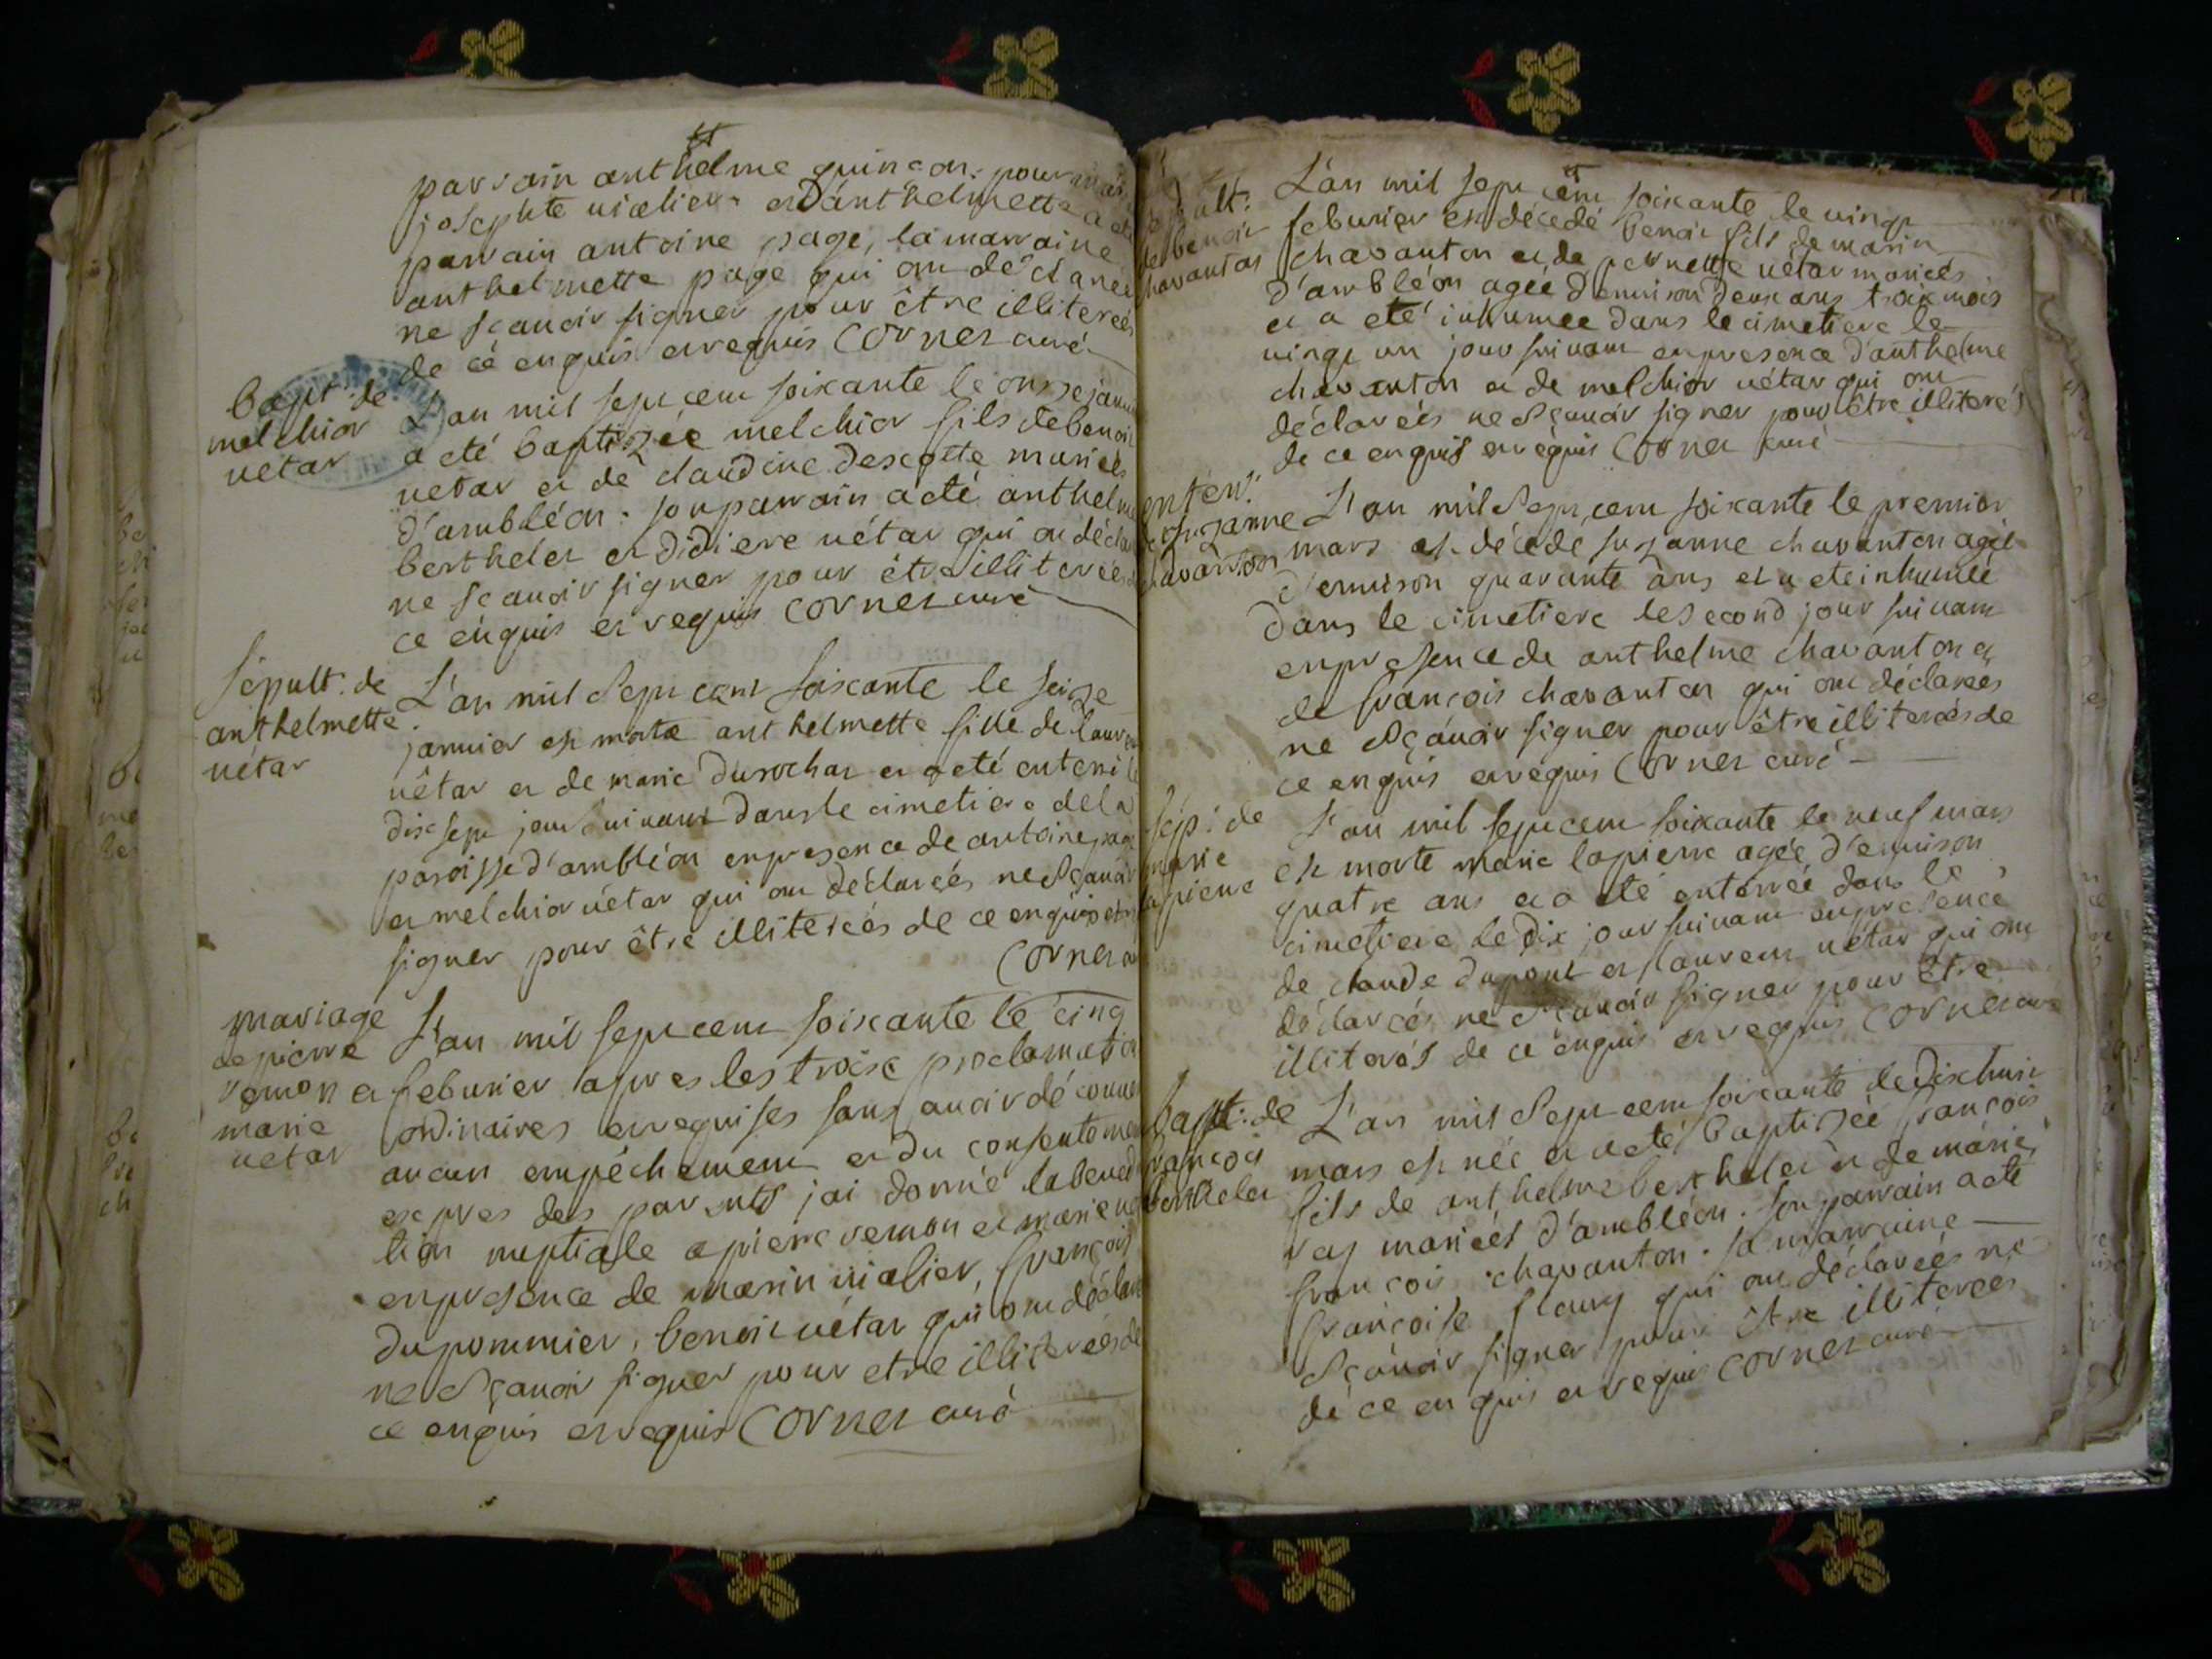 parrain anthelme guincon. pour
josephte uialier. et d'anthelmette a eté
parrain antoine page, la marraine
anthelmette page qui ont déclareés
ne scauoir signer pour être illitereés
de cé enquis et requis Cornet curé
bapt: de
melchior
uétar
L'an mil sept cent soixante le onze januier
a eté baptizée melchior fils de benoit
uetar et de claudine descotte marieés
d'ambléon. son parrain a eté anthelme
berthelet et didiere uétar qui on déclar
ne scauoir signer pour être illitereés de
ce enquis et requis Cornet curé
sépult. de
anthelmette
uétar
L'an mil sept cent soixante le seize
januier est morte anthelmette fille de laurent
uêtar et de marie durochat et a eté enterré le
dix sept jour suiuant dans le cimetiere de la
paroisse d'ambléon en presence de antoine page
et melchior uétar qui ont déclareés ne sçauoir
signer pour être illitereés de ce enquis et r
Cornet cu
mariage
de pierre
vemon et
marie
uetar
L'an mil sept cent soixante le cinq
feburier apres les troix proclamation
ordinaires et requises sans auoir dé couuer
aucun empêchement et du consentement
expres des parents jai donné la benedi
tion nuptiale a pierre vemon et marie uetar
en presence de marin uialier, françois
dupommier, benoit uétar qui ont déclar
ne sçauoir signer pour etre illitereés de
ce enquis et requis Cornet curé
sepult:
de benoit
chavanton
L'an mil sept cent soixante le uingt
feburier est décedé benoit fils de marin
chavanton et de pernette uétar marieés
d'ambléon ageé d'enuison deux ans troix mois
et a eté inhumee dans le cimetiere le
uingt un jour suiuant en presence d'anthelme
chavanton et de melchior uétar qui ont
déclareés ne sçauoir signer pour être illiterés
de ce enquis et requis Cornet curé
enter:
de suzanne
chavanton
L'an mil sept cent soixante le premier
mars est décedé suzanne chavanton ageé
d'enuison quarante ans et a eté inhumée
dans le cimetiere le second jour suiuant
en presence de anthelme chavanton et
de françois chavanton qui ont déclareés
ne sçauoir signer pour être illitereés de
ce enquis et requis Cornet curé
sép: de
marie
lapierre
L'an mil sept cent soixante le neuf mars
est morte marie lapierre ageé d'enuison
quatre ans et a eté enterreé dans le
cimetiere le dix jour suiuant en presence
de claude dupont et laurent uétar qui ont
déclareés ne sçauoir signer pour être
illiterés de ce enquis et requis Cornet curé
bapt: de
françois
berthelet
L'an mil sept cent soixante le dix huit
mars est née et a eté baptizeé françois
fils de anthelme berthelet et de marie
rey marieés d'ambléon. son parrain a eté
françois chavanton. sa marraine
françoise fleury qui ont déclareés ne
sçauoir signer pour être illitereés
de ce enquis et requis Cornet curé